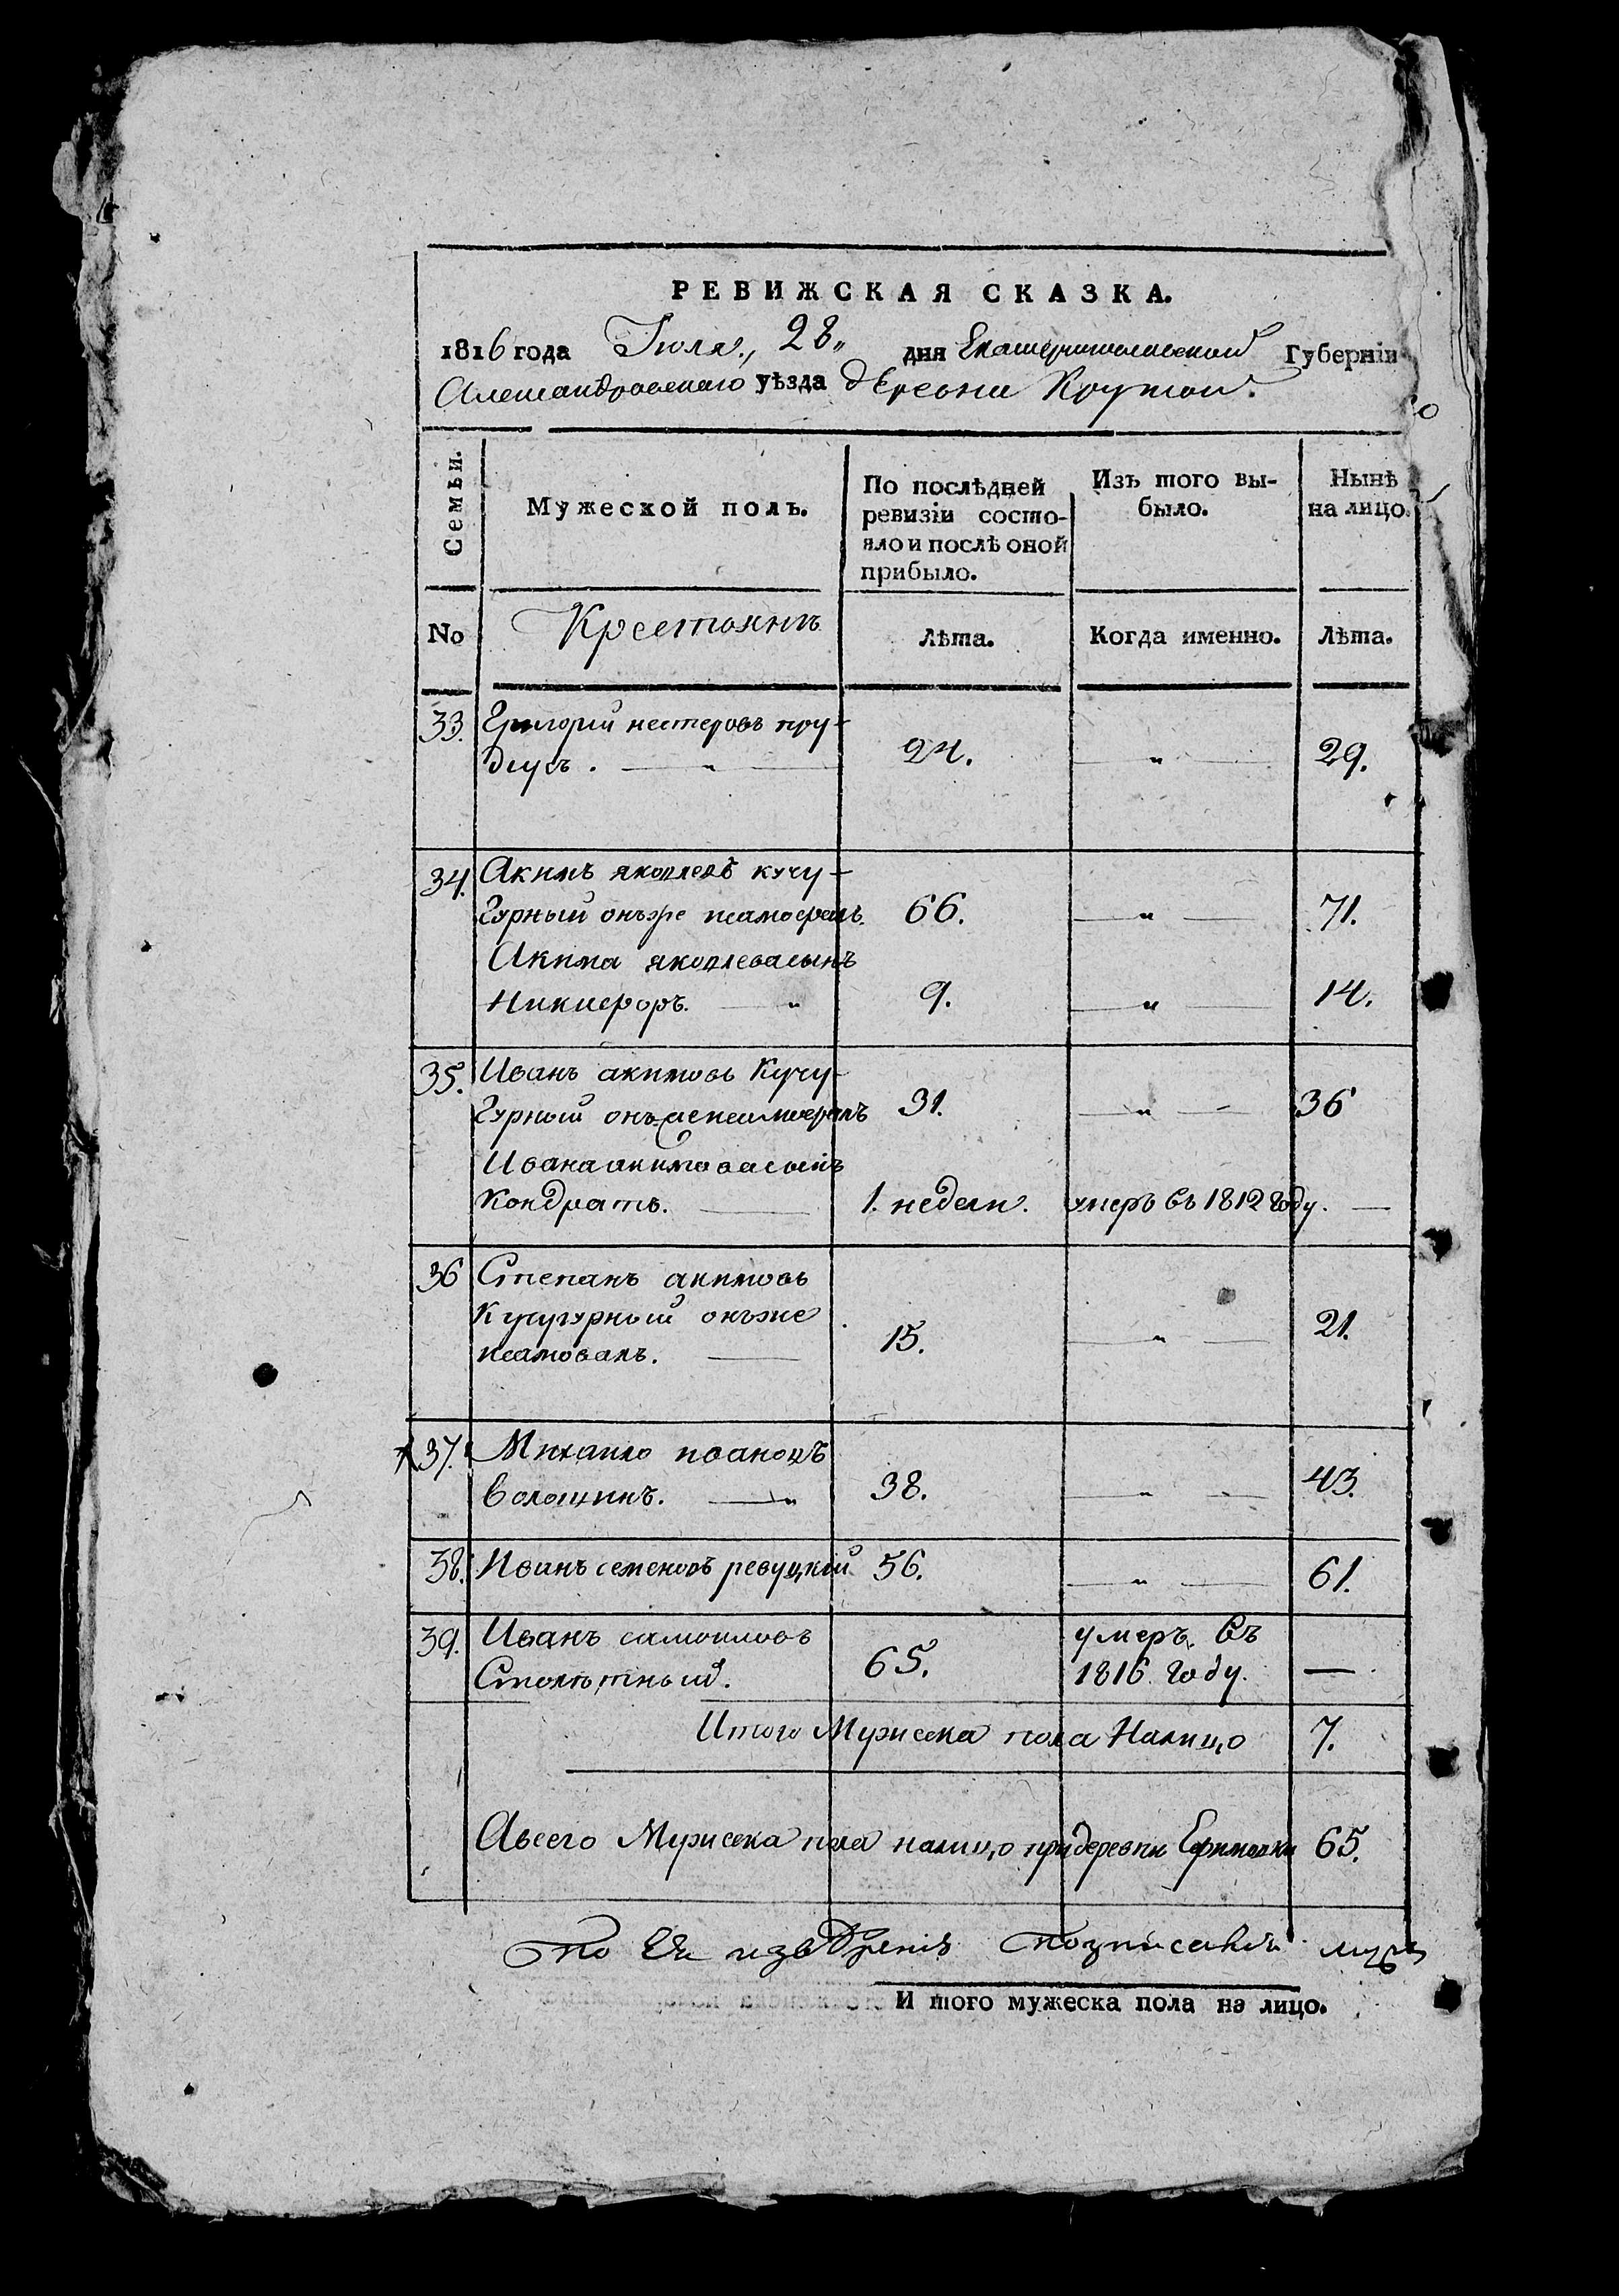 РЕВИЖСКАЯ СКАЗКА.
1816 года Июля, 28„ дня Екатеринославской Губерніи
Александровскаго уѣзда деревни Крутой.
Семьи.
Мужеской полъ.
По послѣдней ревизіи состо-
яло и послѣ оной
прибыло.
Изъ того вы-
было.
Нынѣ
на лицо.
No
Крестоянъ
Лѣта.
Когда именно.
Лѣта.
33. Григорий нестеровъ пру-
дусъ. — „ — 24. — „ — 29.
34. Акимъ яковлевъ кучу-
гурный онъже 66. — „ — 71.
Акима яковлева сынъ
Никифоръ. — „ 9. — „ — 14.
35. Иванъ акимовъ Кучу-
гурный онъже 31. — „ — 36
Ивана акимова сынъ
Кондратъ. — 1. недели. умеръ въ 1812 году. —
36 Степанъ акимовъ
Кучугурный онъже 15. — „ — 21.
37. Михаило ивановъ
Волошинъ. — „ 38. — „ — 43.
38. Иванъ семеновъ ревуцкий 56. — „ — 61.
39. Иванъ самоиловъ умеръ въ
Столѣтный. 65. 1816 году. —
Итого Мужеска пола Налицо 7.
Авсего Мужеска пола налицо придеревни Ефимовки 65.
И того мужеска пола на лицо.